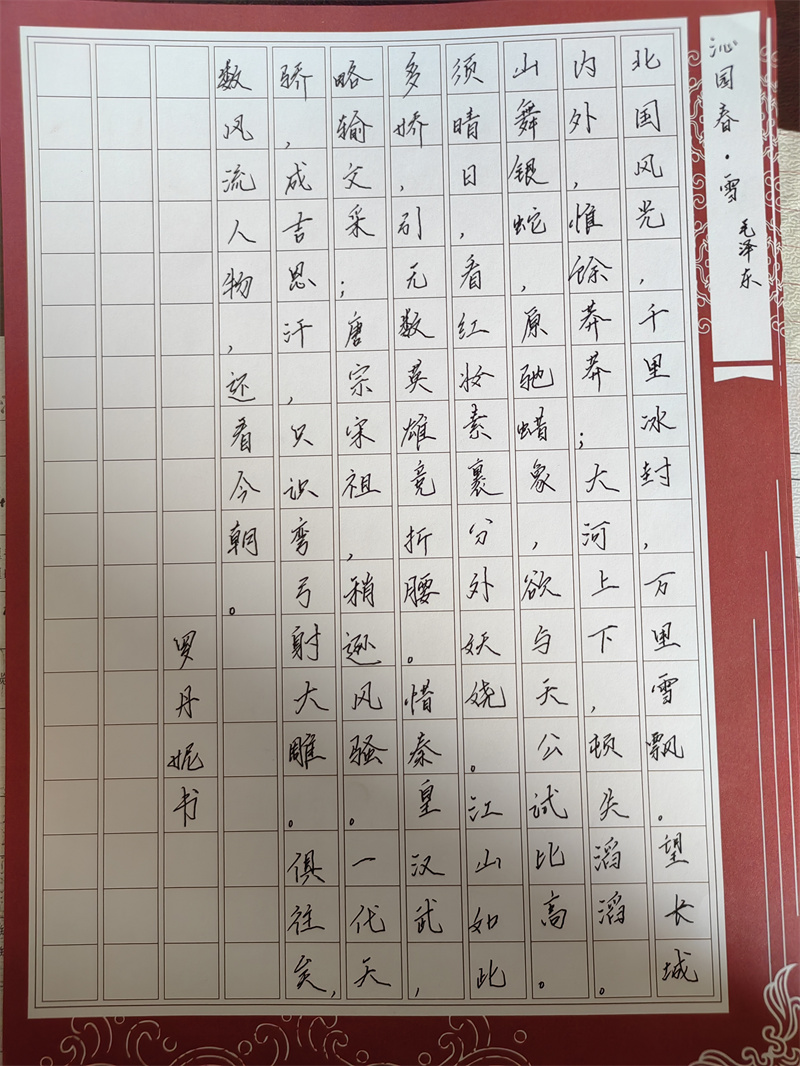 沁园春·雪
毛泽东
北国风光,千里冰封,万里雪飘。望长城
内外,惟馀莽莽;大河上下,顿失滔滔。
山舞银蛇,原驰蜡象,欲与天公试比高。
须晴日,看红妆素裹分外妖娆。江山如此
多娇,引无数英雄竞折腰。惜秦皇汉武,
略输文采;唐宗宋祖,稍逊风骚。一代天
骄,成吉思汗,只识弯弓射大雕。俱往矣,
数风流人物,还看今朝。
罗丹妮书